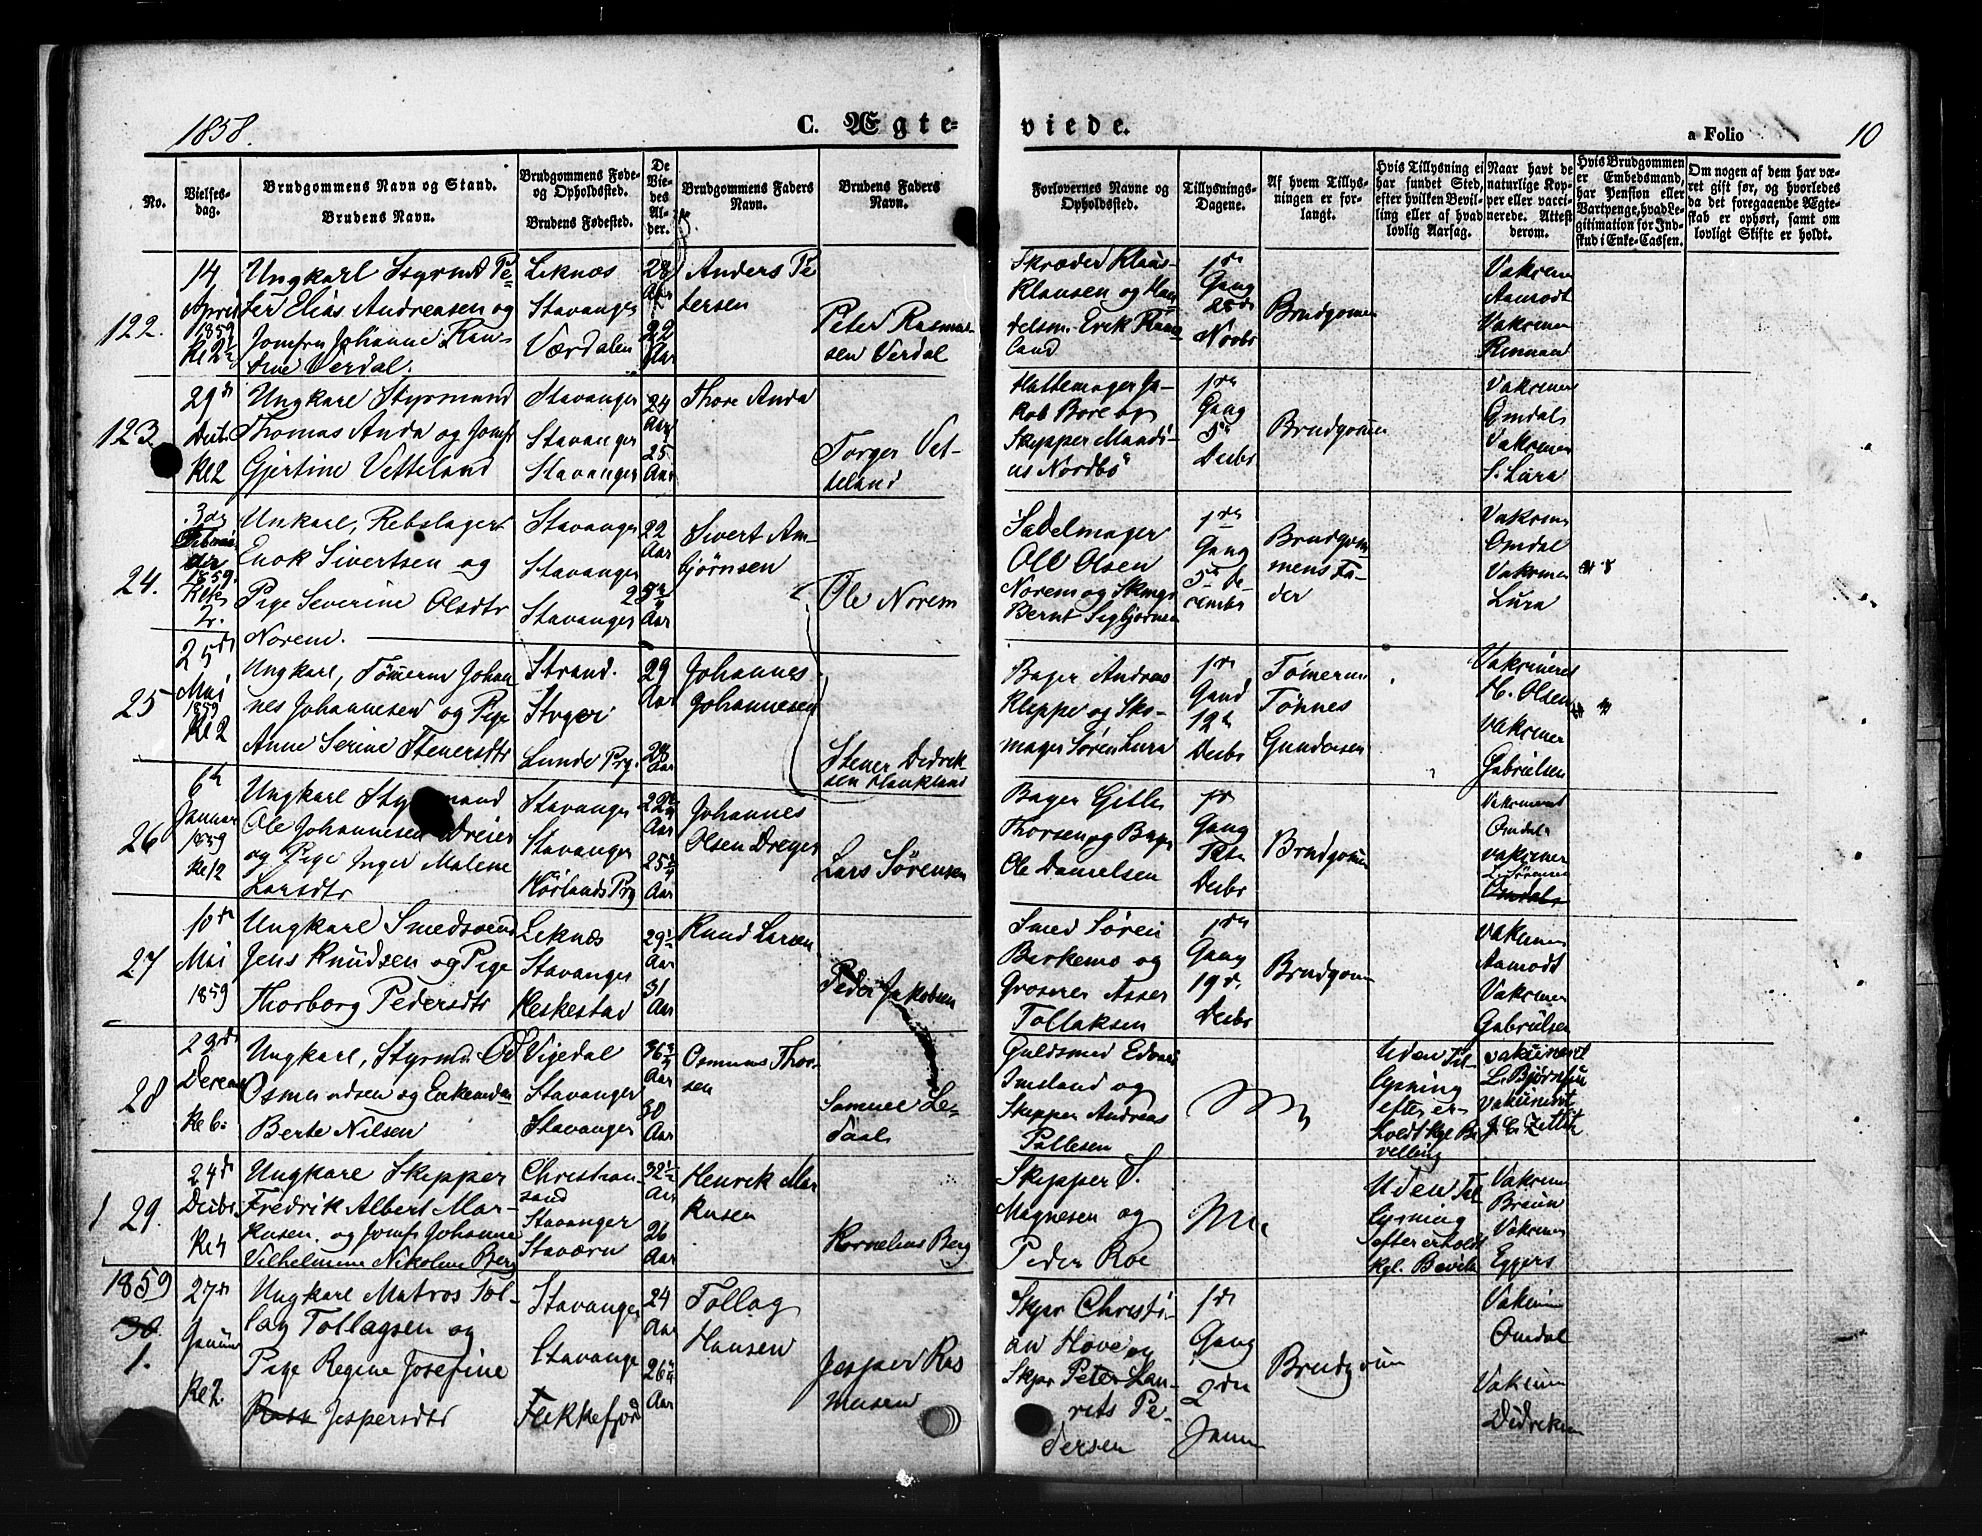 1858.
C. Ægte-
viede.
a Folio
10
No.
Vielses-
dag.
Brudgommens Navn og Stand.
Brudens Navn.
Brudgommens Føde-
og Opholdssted.
Brudens Fødested.
De
Vie-
des
Al-
der.
Brudgommens Faders
Navn.
Brudens Faders
Navn.
Forlovernes Navne og
Opholdssted.
Tillysnings-
Dagene.
Af hvem Tillys-
ningen er for-
langt.
Hvis Tillysning ei
har fundet Sted,
efter hvilken Bevil-
ling eller af hvad
lovlig Aarsag.
Naar havt de
naturlige Kop-
per eller vacci-
nerede. Attest
derom.
Hvis Brudgommen
er Embedsmand,
har Pension eller
Vartpenge, hvad Le-
gitimation for Ind-
skud i Enke-Cassen.
Om nogen af dem har væ-
ret gift før, og hvorledes
da det foregaaende Ægte-
skab er ophørt, samt om
lovligt Skifte er holdt.
122.
14
April
1859
Kl 2½
Ungkarl Styrmd Pe-
ter Elias Andreasen og
Jomfru Johanne
Verdal.
Leknæs
Stavanger
Værdalen
28
Aar
22
Aar
Anders Pe
tersen
Peter Rasmus-
sen Verdal
Skræder Klaus
Klausen og Han
delsm. Erik
land
1ste
Gang
28de
Novbr
Brudgomen
Vakcinen
Aamodt
Vakcinen
123
29de
Decbr
Kl 2
Ungkarl Styrmand
Thomas Anda og Jomfr
Gjertine Vetteland
Stavanger
Stavanger
Stavanger
24
Aar
25
Aar
Thore Anda
Torger Vet-
teland
Hattemager Ja-
kob Bore og
Skipper Maudi-
us Nordbø
1ste
Gang
5te
Decbr
Brudgomen
Vakciner
Omdal
Vakciner
S. Lura
24.
3de
Februar
1859.
Klok
2.
Unkarl, Rebslager
Enok Sivertsen og
Pige Severine Olsdtr
Norem.
Stavanger
Stavanger
Stavanger
22
Aar
Aar
Sivert Am-
bjørnsen
Ole Norem
Sadelmager
Ole Olsen
Norem og
Bernt Sigbjørnsen
1ste
Gang
5te De
cembr
Brudgom-
mens Fa-
der
Vakcine
Omdal
Vakciner
Lura
25
25de
Mai
1859
Kl 2
Ungkarl, Tømerm Johan
nes Johannesen og Pige
Anne Serine Stenersdtr
Strand.
Lunde Prg.
29
Aar
28
Aar
Johannes
Johannesen
Stener Didrik
sen Hauksland
Bager Andreas
Kleppe og Sko-
mager Søren Lura
1ste
Gand
12te
Decbr
Tømerm
Tønnes
Gundersen
Vakcineret
H. Olsen
Vakciner
Gabrielsen
26
6te
Januar
1859
Kl 2
Ungkarl Styrmand
Ole Johannesen Dreier
og Pige Inger Malene
Larsdtr
Stavanger
Stavanger
Aar
25
Aar
Johannes
Olsen Dreyer
Lars Sørensen
Bager Gitle
Thorsen og Bager
Ole Danielsen
1ste
Gang
Decbr
Brudgomen
Vakcineret
Omdal
Vakciner
L. Sørensen
Omdal
27
10de
Mai
1859
Ungkarl Smedsvend
Jens Knudsen og Pige
Thorborg Pedersdtr
Leknæs
Stavanger
Heskestad
29½
Aar
31
Aar
Knud Larsen
Peder Jakobsen
Smed Søren
Birkemo og
Groserer Asser
Tollaksen
1ste
Gang
19de
Decbr
Brudgom
Vakciner
Aamodt
Vakciner
Gabrielsen
28
29de
Kl 6.
Ungkarl, Styrmd Od
Osmundsen og Enkemdm
Berte Nilsen
Vigedal
Stavanger
Stavanger
36¾
Aar
30
Aar
Osmund Thor-
sen
Samuel Le-
daal
Guldsmed Edvard
Imsland og
Skipper Andreas
Pallesen
Uden Til-
lysning
efter er-
holdt kgl Be
villing
vakcineret
L. Bjørnsen
Vakcineret
J. C. Zetlitz
29.
24de
Decbr
Kl 4
Ungkarl Skipper
Fredrik Albert Mar-
kusen. og Jomfr Johanne
Vilhelmine Nikoline Berg
Christian-
sand
Stavanger
Staværn
32½
Aar
26
Aar
Henrik Mar
kusen
Kornelius Berg
Skipper S.
Magnesen og
Peder Roe
Uden Til
lysning
efter erholdt
kgl. Bevilli
Vakcin
Braun
Vakcines
Eggers
1859
30.
1.
27de
Januar
Kl 2.
Ungkarl Matros Tol-
lag Tollagsen og
Pige Regine Josefine
Jespersdtr
Stavanger
Stavange
Flekkefjord
24
Aar
26
Aar
Tollag
Hansen
Jesper Ras
musen
Skpr Christi-
an Hove og
Skpr Peter Lau-
rits Pe-
dersen
1ste
Gang
2den
Janu
Brudgom
Vakcin
Omdal
Vakcin
Didriksen